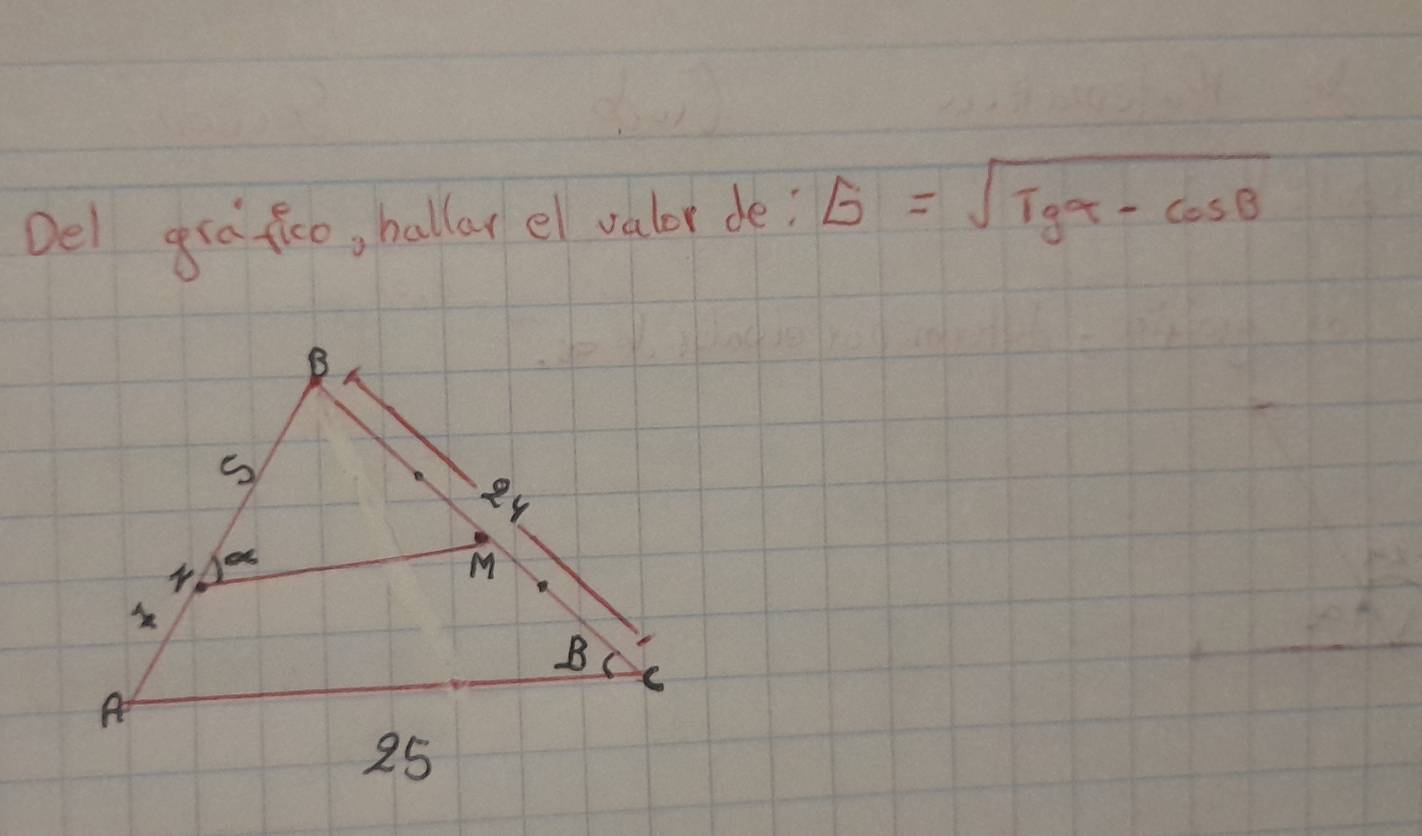 Del gráfico, hallar el valor de: E = √Tgα - cosB
B
S
24
α
M
x
B
C
A
25